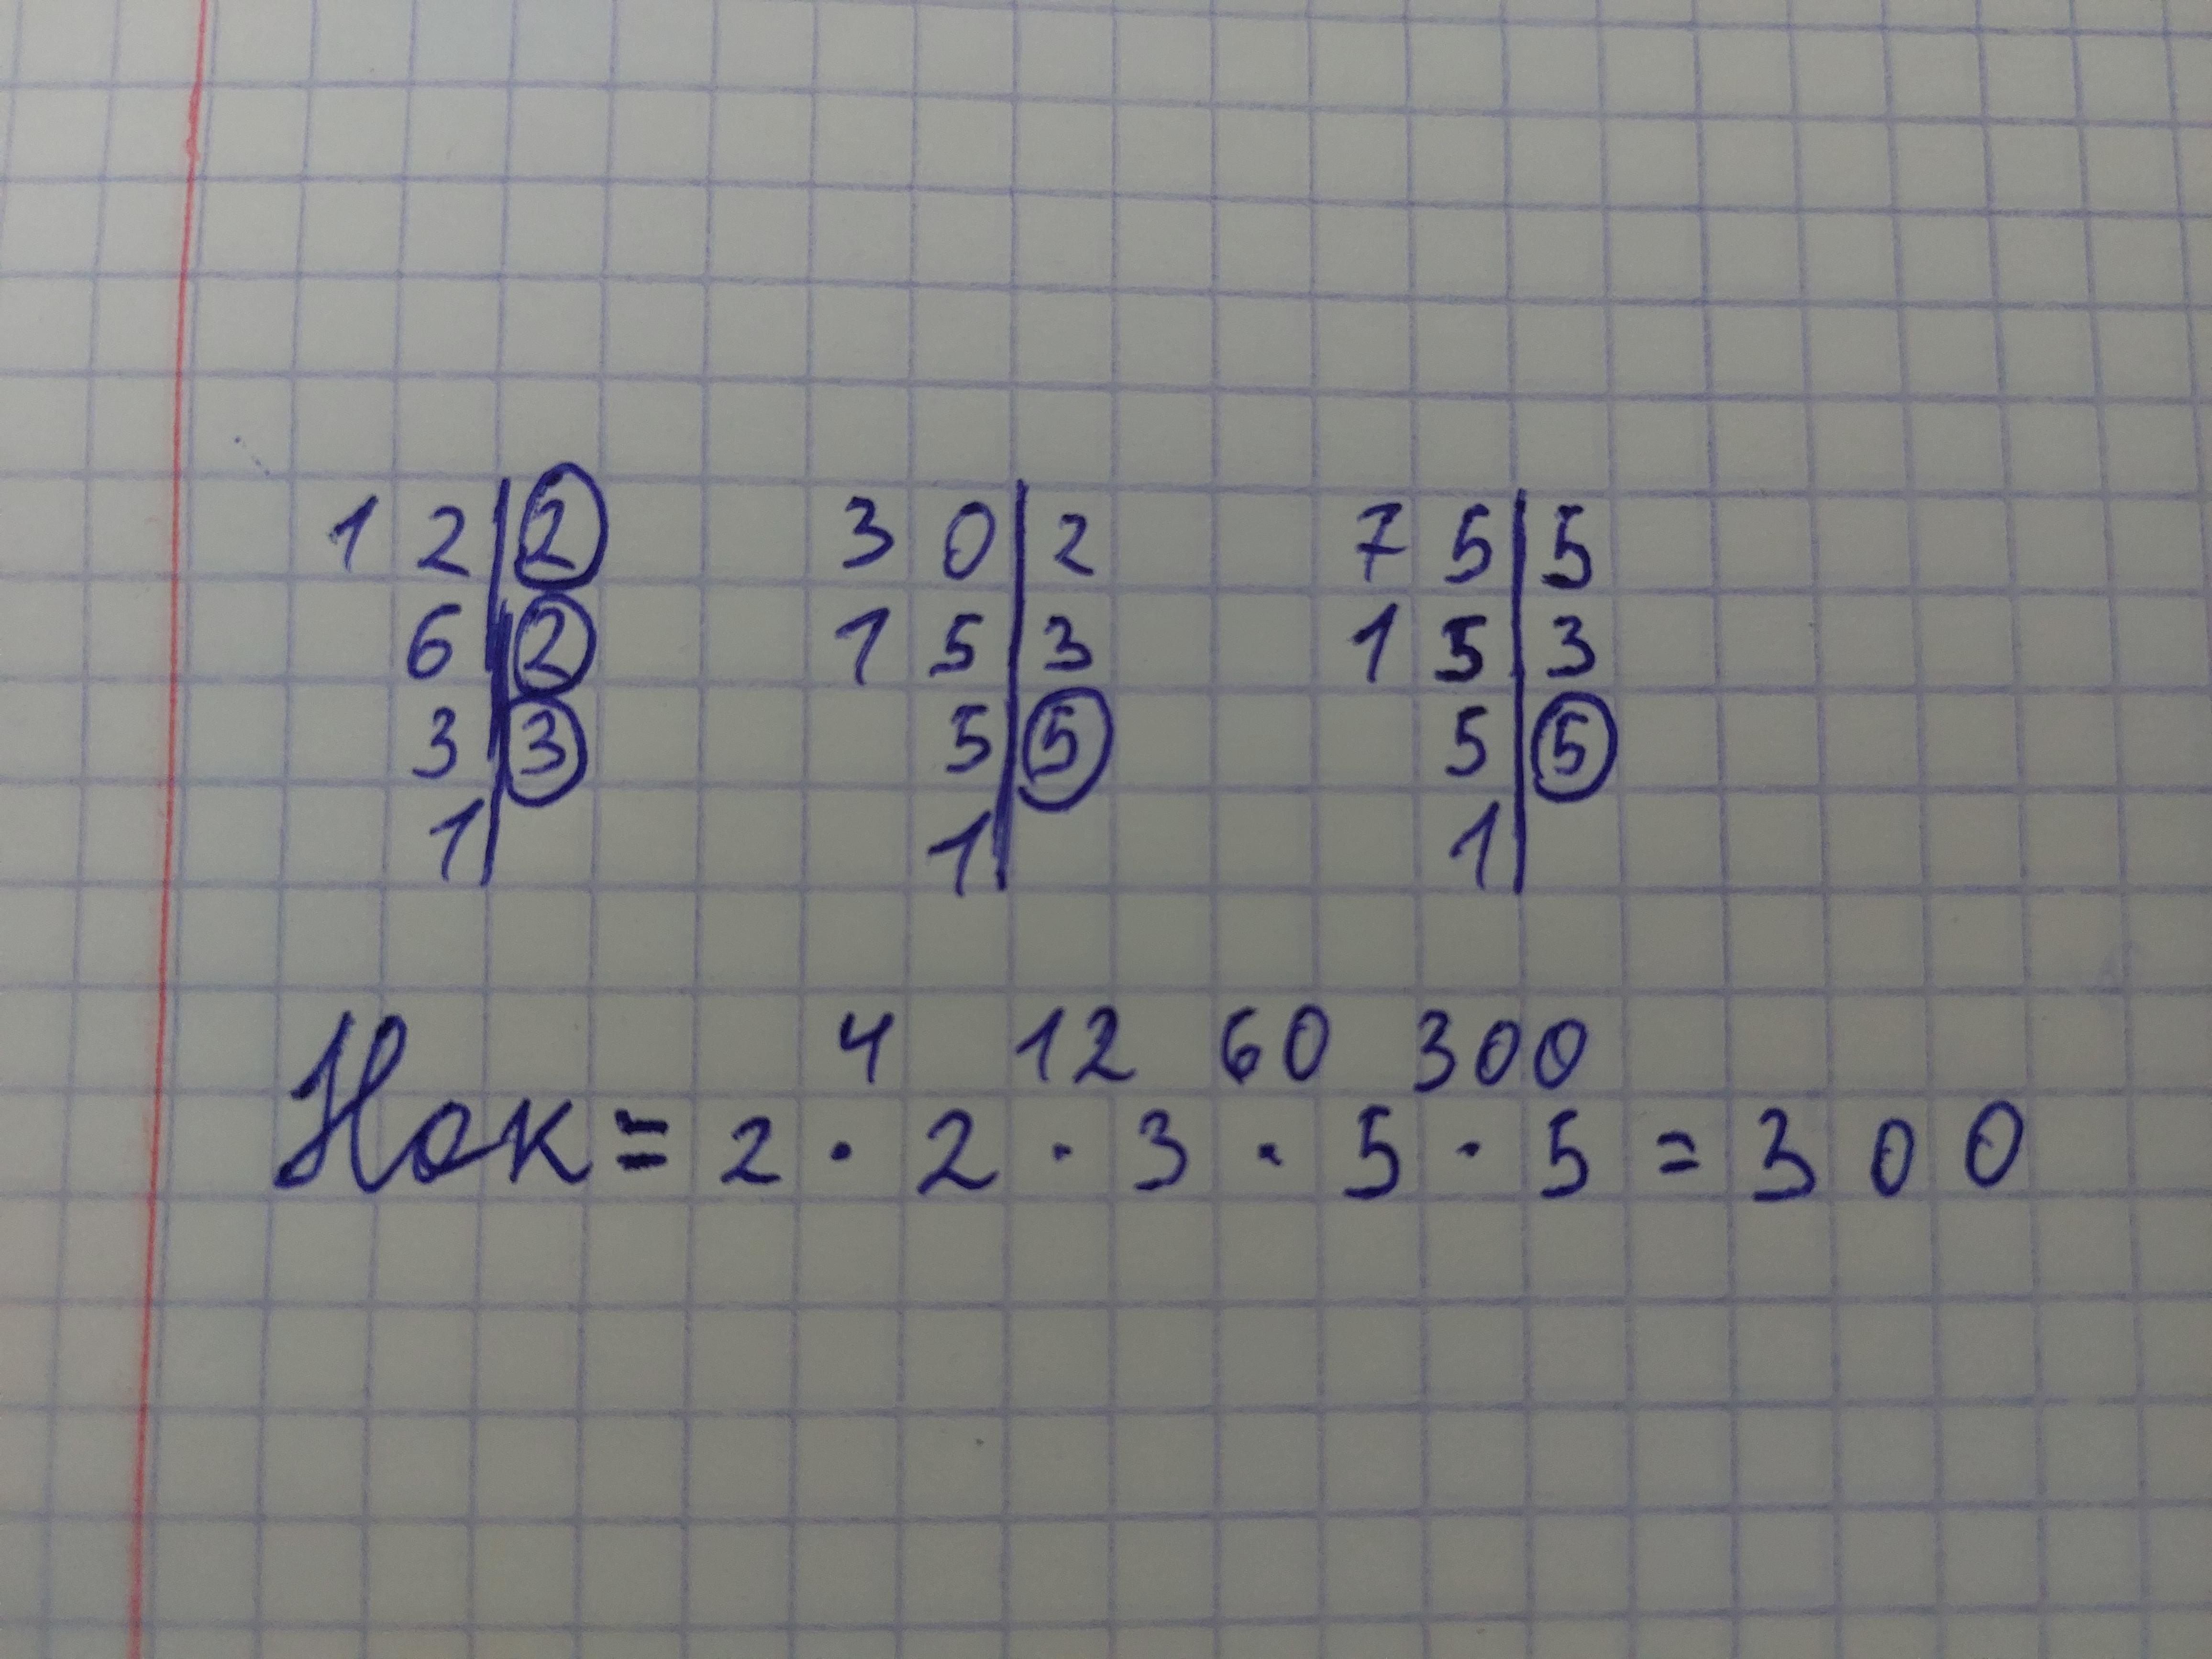 12|2 30|2 75|5
6|2 15|3 15|3
3|3 5|5 5|5
1| 1| 1|
4 12 60 300
Нок = 2 · 2 · 3 · 5 · 5 = 300